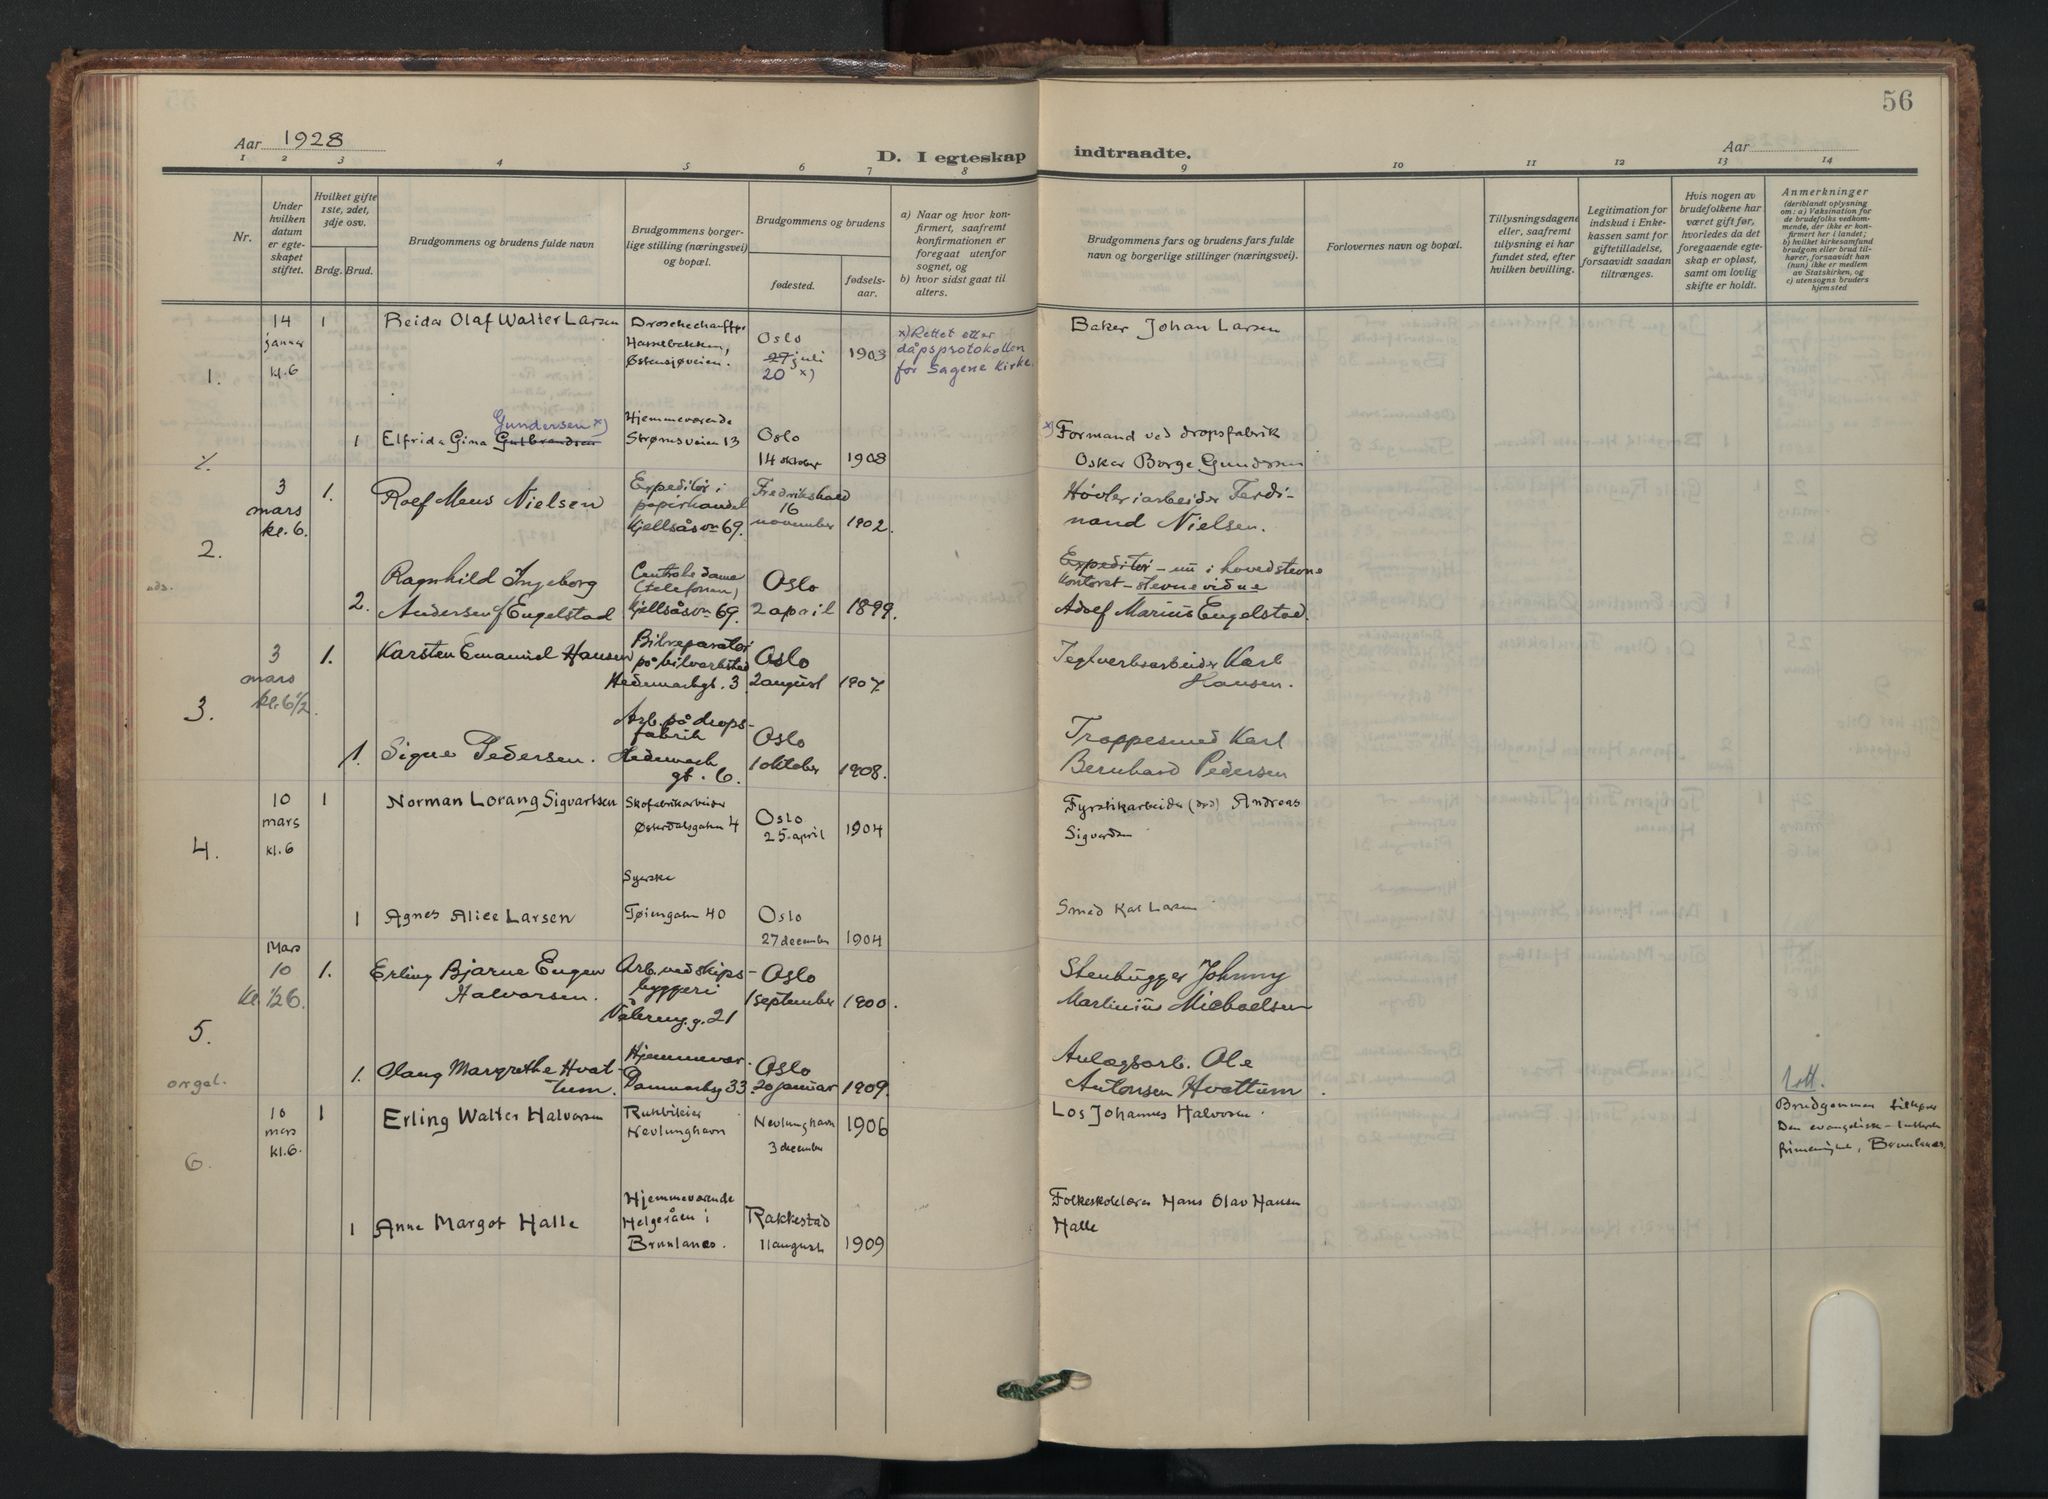 56
Aar 1928
D. I egteskap indtraadte.
Aar
1 2 3 4 5 6 7 8 9 10 11 12 13 14
Nr.
Under
hvilken
datum
er egte-
skapet
stiftet.
Hvilket gifte
1ste, 2det,
3dje osv.
Brdg. Brud.
Brudgommens og brudens fulde navn
Brudgommens borger-
lige stilling (næringsvei)
og bopæl.
Brudgommens og brudens
fødested.
fødsels-
aar.
a) Naar og hvor kon-
firmert, saafremt
konfirmationen er
foregaat utenfor
sognet, og
b) hvor sidst gaat til
alters.
Brudgommens fars og brudens fars fulde
navn og borgerlige stillinger (næringsvei).
Forlovernes navn og bopæl.
Tillysningsdagene
eller, saafremt
tillysning ei har
fundet sted, efter
hvilken bevilling.
Legitimation for
indskud i Enke-
kassen samt for
giftetilladelse,
forsaavidt saadan
tiltrænges.
Hvis nogen av
brudefolkene har
været gift før,
hvorledes da det
foregaaende egte-
skap er opløst,
samt om lovlig
skifte er holdt.
Anmerkninger
(deriblandt oplysning
om: a) Vaksination for
de brudefolks vedkom-
mende, der ikke er kon-
firmert her i landet;
b) hvilket kirkesamfund
brudgom eller brud til-
hører, forsaavidt han
(hun) ikke er medlem
av Statskirken, og
c) utensogns bruders
hjemsted
1.
14
januar
kl. 6
1
Reidar Olaf Walter Larsen
Hasselbakken,
Østensjøveien.
Oslo
27 juli
20 x)
1903
x) Rettet etter
dåpsprotokollen
for Sagene Kirke.
Baker Johan Larsen
1
Gundersen x)
Elfrida Gina Gulbrandsen
Hjemmeværende
Strømsveien 13
Oslo
14 oktober
1908
x) Formand ved dropsfabrik
Oskar Borge Gundersen
2.
3
mars
kl. 6.
1.
Rolf Mens Nielsen
Expeditør i
papirhandel
Kjellsåsvn 69.
Fredrikshald
16
november
1902.
Høvleriarbeider Ferdi-
nand Nielsen.
2.
Ragnhild Ingeborg
Andersen f Engelstad
Centraldame
(telefonen)
Kjellsåsvn 69.
Oslo
2 april
1899.
Expeditør - nu i hovedstevne
kontoret - stevnevidne
Adolf Marius Engelstad.
3.
3
mars
kl. 6 1/2.
1.
Karsten Emanuel Hansen
Bilreparatør
på bilverksted
Hedemarksgt. 3.
Oslo
2 august
1907.
Teglverksarbeider Karl
Hansen.
1.
Signe Pedersen.
Arb. på drops-
fabrik
Hedemark
gt. 6.
Oslo
1 oktober
1908.
Trappesmed Karl
Bernhard Pedersen
4.
10
mars
kl. 6
1
Norman Lorang Sigvartsen
Skofabrikarbeider
Østerdalsgaten 4
Oslo
25. april
1904
Fyrstikarbeider (død) Andreas
1
Agnes Alice Larsen
Syerske
Tøiengaten 40
Oslo
27 december
1904
Smed Karl Larsen
5.
Mars
10
Kl. 1/2 6.
1.
Erling Bjarne Eugen
Halvorsen.
Arb. ved skips-
byggeri
Vålereng. g. 21
Oslo
1 september
1900.
Stenhugger Johnny
Martinius Michaelsen
orgel.
1.
Margrethe Hvat-
tum.
Hjemmevær.
Danmarksg 33.
Oslo
20 januar
1909.
Anlægsarb. Ole
Antonsen Hvattum.
6.
10
mars
kl. 6.
1
Erling Walter Halvorsen
Nevlunghavn
Nevlunghavn
3 december
1906
Los Johannes Halvorsen.
Brudgommen tilhører
Den evangelisk-lutherske
frimenighet, Brunlanes.
1
Anne Margot Halle
Hjemmeværende
Helgeråen i
Brunlanes.
Rakkestad
11 august
1909
Folkeskolelærer Hans Olav Hansen
Halle